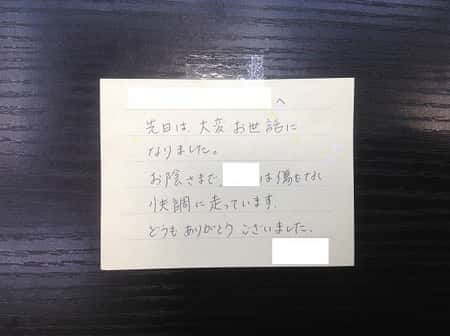 へ
先日は、大変お世話に
なりました。
お陰さまで、は傷もなく
快調に走っています。
どうもありがとうございました。